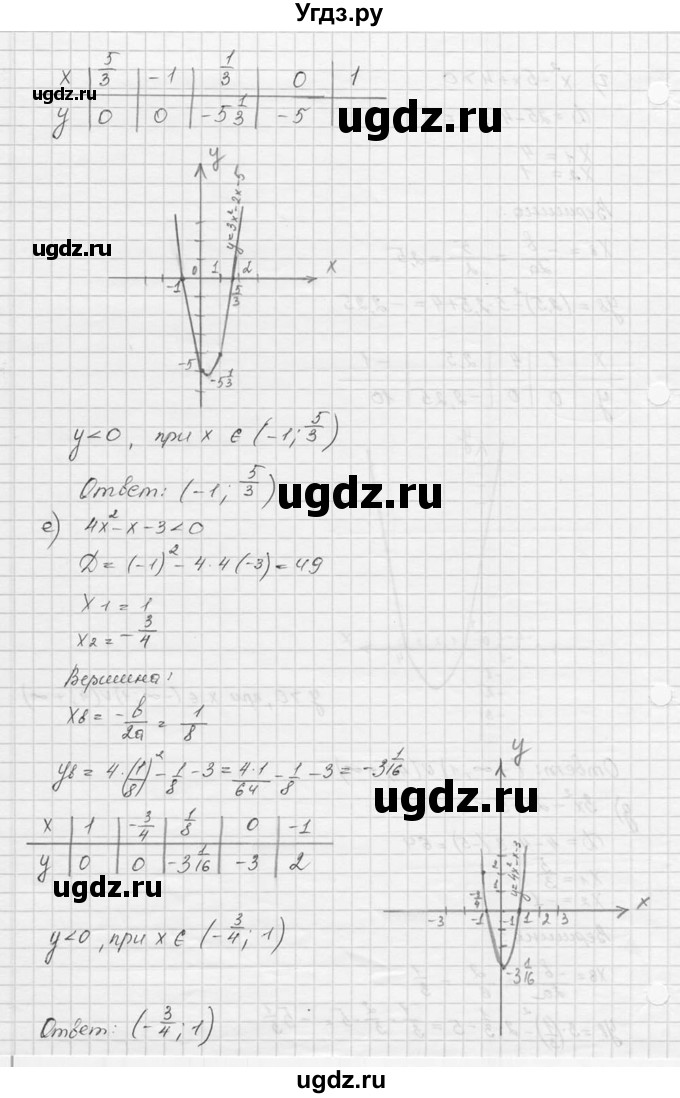 Угдз.ру
x | 5/3 | -1 | 1/3 | 0 | 1
ugdz.ru
y | 0 | 0 | -5 1/3 | -5 |
ugdz.ru
y
y=3x²-2x-5
ugdz.ru
-1 0 1 2 x
5/3
-5
-5 1/3
y<0, при x ∈ (-1; 5/3)
Ответ: (-1; 5/3)
ugdz.ru
е) 4x²-x-3<0
Д = (-1)² - 4·4(-3) = 49
x1 = 1
x2 = -3/4
Вершина:
xв = -b/2a = 1/8
yв = 4·(1/8)² - 1/8 - 3 = 4·1/64 - 1/8 - 3 = -3 1/16
ugdz.ru
x | 1 | -3/4 | 1/8 | 0 | -1
y | 0 | 0 | -3 1/16 | -3 | 2
y
y=4x²-x-3
-3 -1 1 2 3 x
-3 1/16
y<0, при x ∈ (-3/4; 1)
Ответ: (-3/4; 1)
ugdz.ru
ugdz.ru